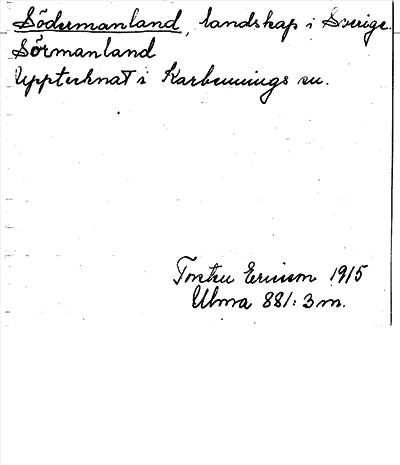 Södermanland, landskap i Sverige.
Sörmanland
Upptecknat i Karbennings sn.
Torsten Ericson 1915
Ulma 881:3 m.